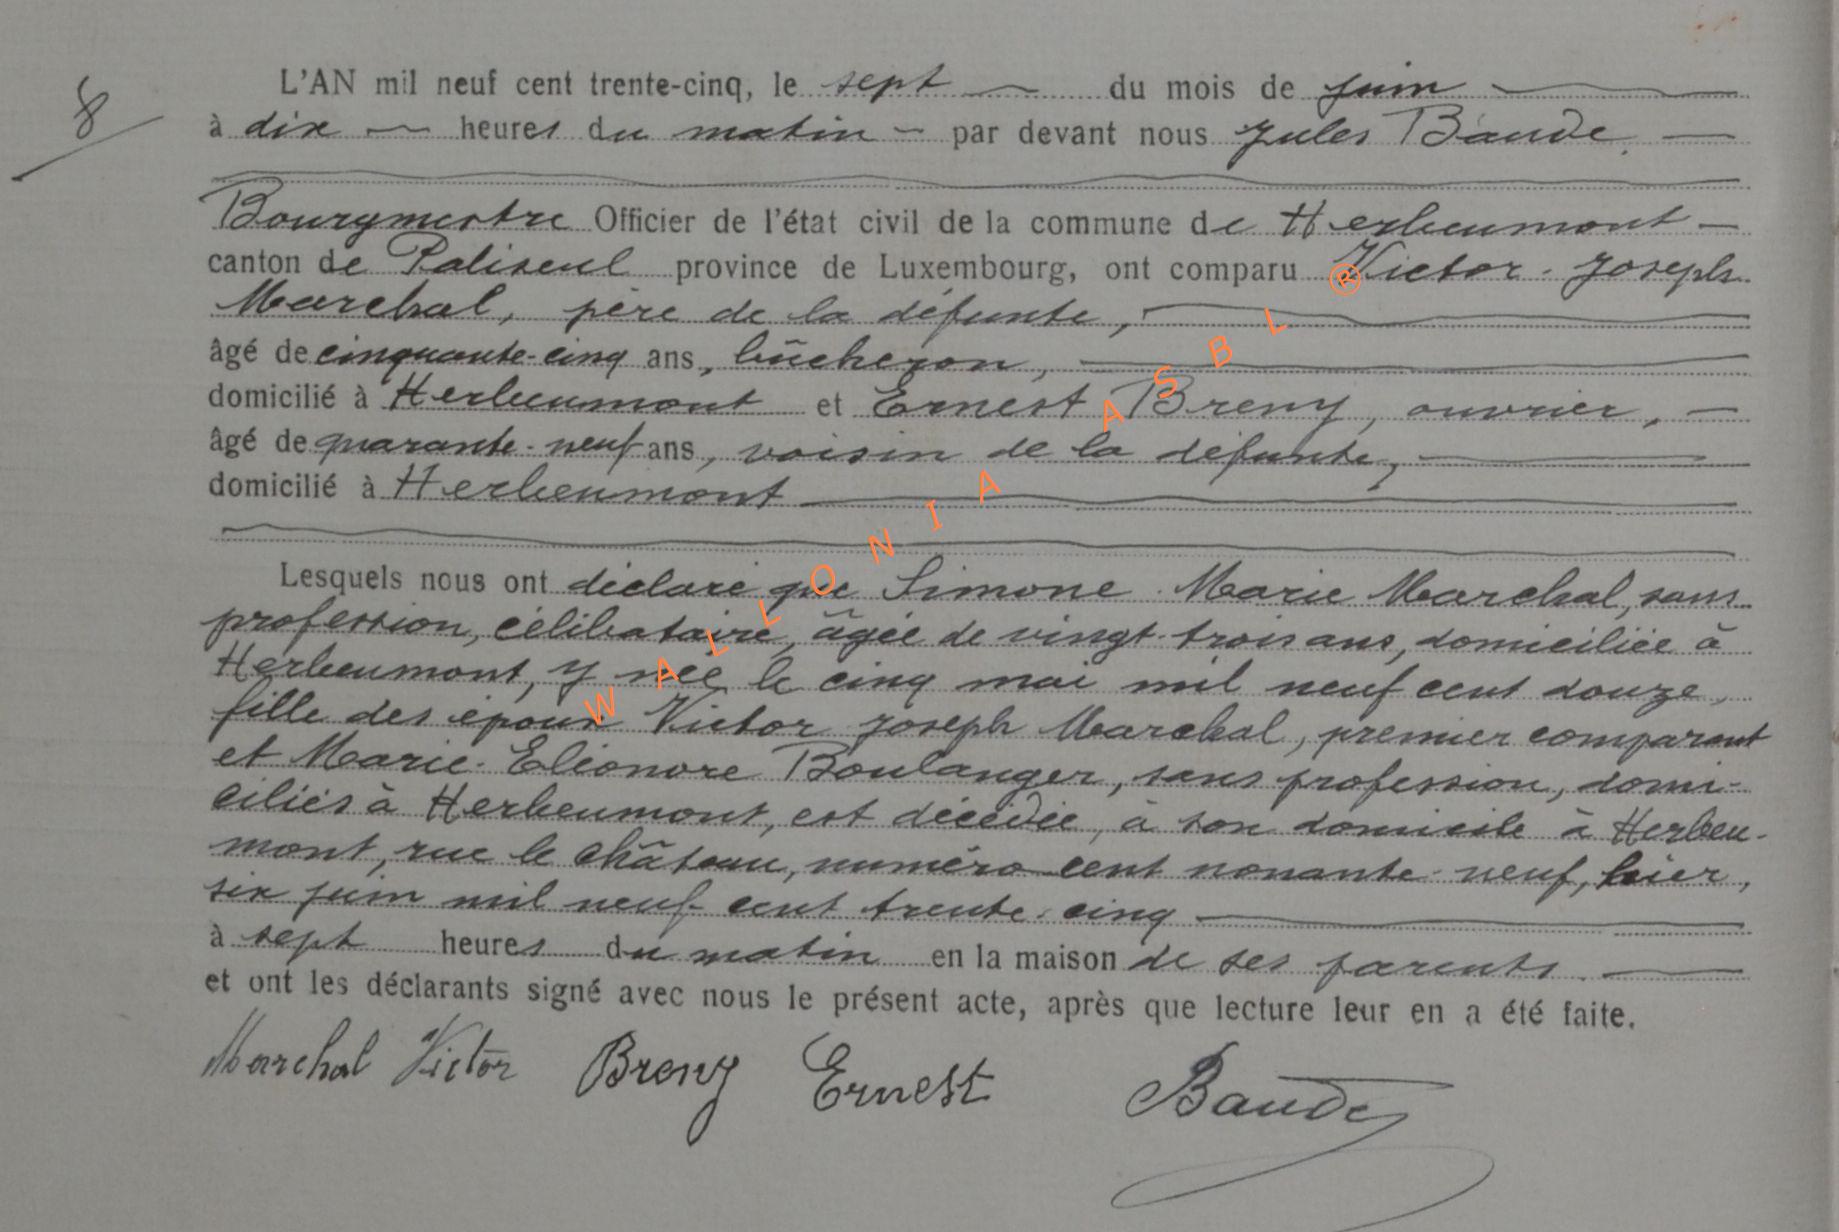 8
L'AN mil neuf cent trente-cinq, le sept du mois de juin
à dix heures du matin par devant nous Jules Baude.
Bourgmestre Officier de l'état civil de la commune de Herbeumont
canton de Paliseul province de Luxembourg, ont comparu Victor-Joseph
Marchal, père de la défunte,
âgé de cinquante-cinq ans, bûcheron,
domicilié à Herbeumont et Ernest Breny, ouvrier,
âgé de quarante-neuf ans, voisin de la défunte,
domicilié à Herbeumont
Lesquels nous ont déclaré que Simone Marie Marchal, sans
profession, célibataire, âgée de vingt-trois ans, domiciliée à
Herbeumont, y née le cinq mai mil neuf cent douze,
fille des époux Victor Joseph Marchal, premier comparant
et Marie-Eléonore Boulanger, sans profession, domi-
ciliés à Herbeumont, est décédée, à son domicile à Herbeu-
mont, rue le Château, numéro cent nonante-neuf, hier,
six juin mil neuf cent trente-cinq
à sept heures du matin en la maison de ses parents.
et ont les déclarants signé avec nous le présent acte, après que lecture leur en a été faite.
Marchal Victor Breny Ernest Baude
WALLONIA ASBL ®